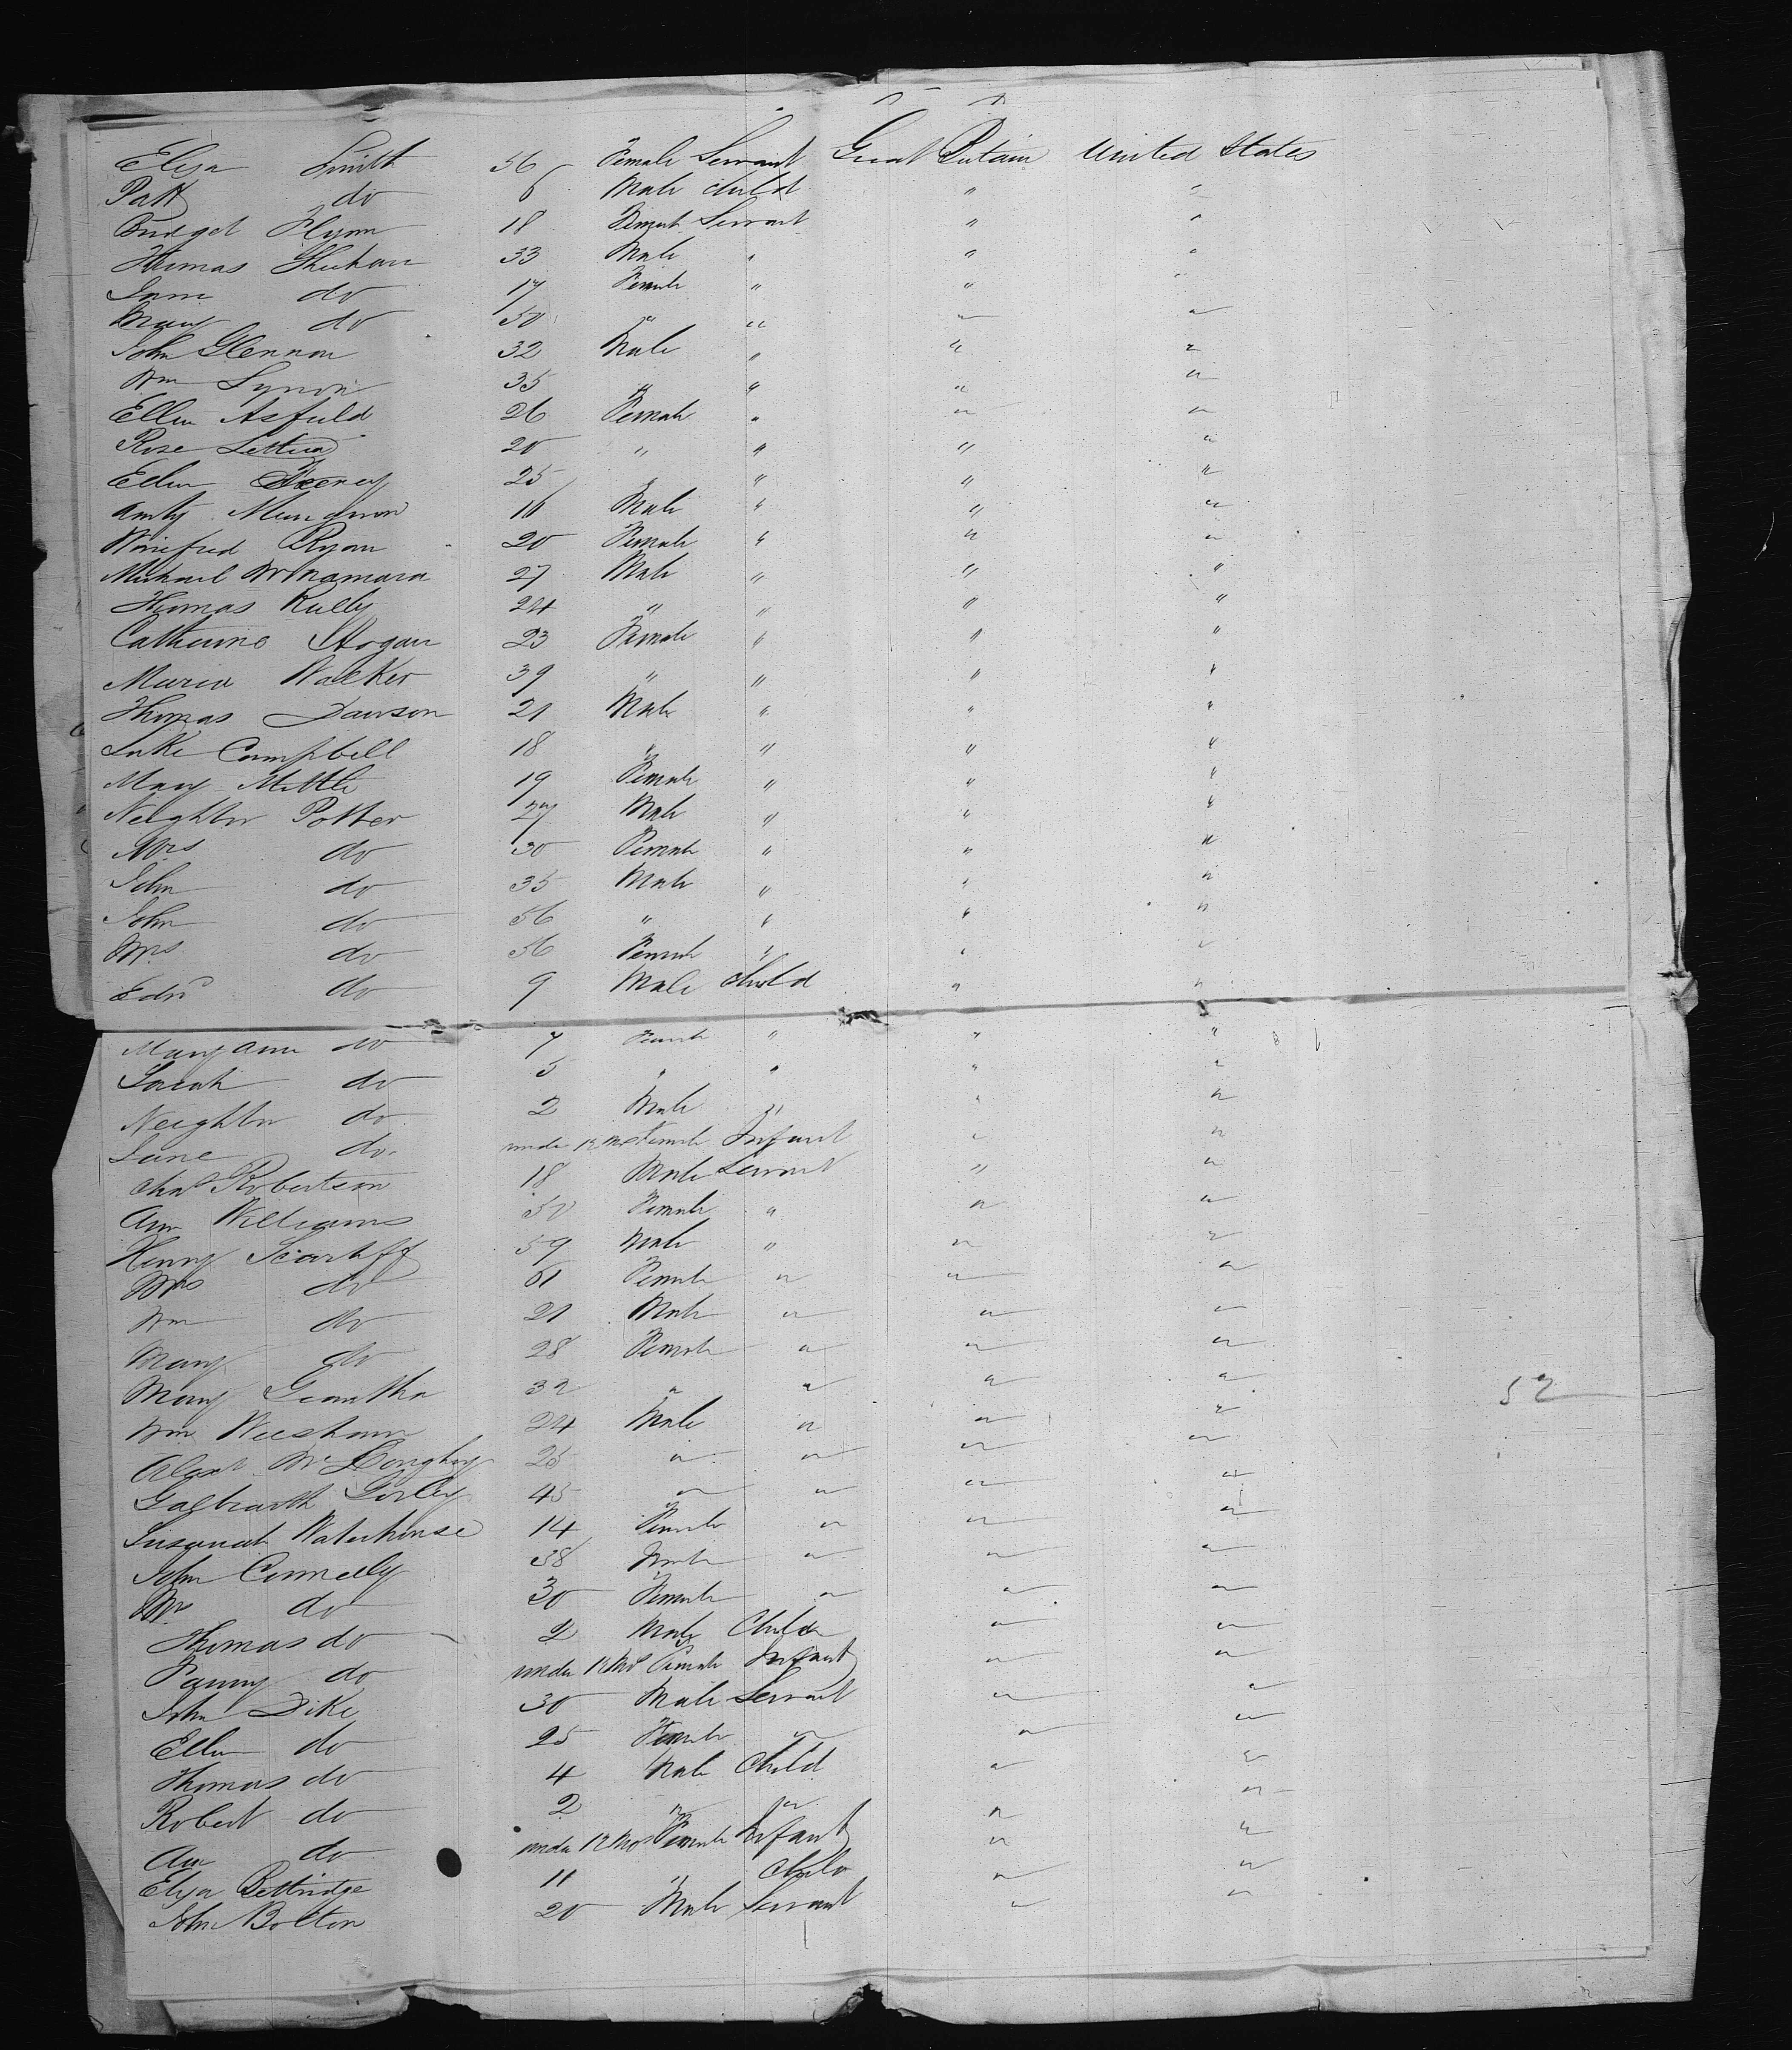 Eliza Smith 56 Female Servant Great Britain United States
Patt do 6 Male Child " "
Bridget Flynn 18 Female Servant " "
Thomas Sheehan 33 Male " " "
Jane do 17 Female " " "
Mary do 50 " " " "
John Glennon 32 Male " " "
Wm 35 " " " "
Ellen Asfield 26 Female " " "
Rose 20 " " " "
Ellen 25 " " " "
16 Male " " "
Winefred Ryan 20 Female " " "
Michael McNamara 27 Male " " "
Thomas Kelly 24 " " " "
Catherine Hogan 23 Female " " "
Maria Walker 39 " " " "
Thomas Dawson 21 Male " " "
Luke Campbell 18 " " " "
Mary 19 Female " " "
Neighter Potter 27 Male " " "
Mrs do 30 Female " " "
John do 35 Male " " "
John do 56 " " " "
Mrs do 56 Female " " "
Edwd do 9 Male Child " "
Mary Ann do 7 Female " " "
Sarah do 5 " " " "
Neighter do 2 Male " " "
Jane do. under 12 Mos Female Infant " "
Chas Robertson 18 Male Servant " "
Ann Williams 50 Female " " "
Henry 59 Male " " "
Mrs do 61 Female " " "
Wm do 21 Male " " "
Mary do 28 Female " " "
Mary 32 " " " " 52
Wm 24 Male " " "
Alext 25 " " " "
Galbraith 45 " " " "
Susanah Waterhouse 14 Female " " "
John Connelly 38 Male " " "
Mrs do 30 Female " " "
Thomas do 2 Male Child " "
Fanny do under 12 Mos Female Infant " "
John Dike 30 Male Servant " "
Ellen do 25 Female " " "
Thomas do 4 Male Child " "
Robert do 2 " " " "
Ann do under 12 Mos Female Infant " "
Eliza Bettridge 11 " Child " "
John Bolton 20 Male Servant " "